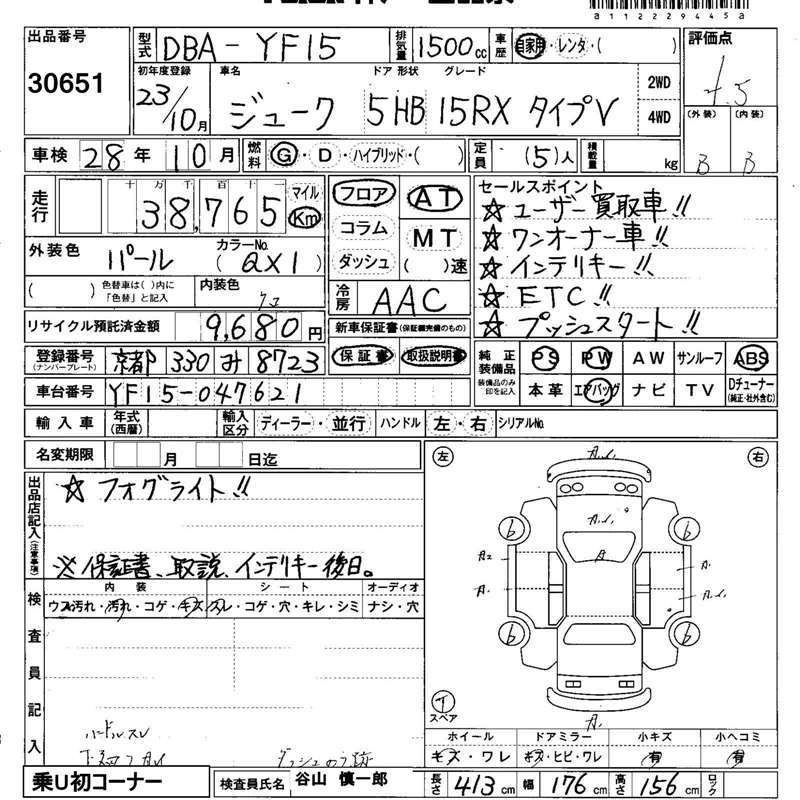 a11222944 5a
出品番号
30651
型式 DBA-YF15
排気量 1500cc
車歴 自家用・レンタ・( )
評価点
4.5
初年度登録 車名 ドア 形状 グレード
23/10月 ジューク 5HB 15RX タイプV
2WD
4WD
(外装) (内装)
B B
車検 28年 10月
燃料 G・D・ハイブリッド・( )
定員 (5)人
積載量 kg
走行 十 万 千 百 十 一
38,765 マイル Km
フロア AT
コラム MT
ダッシュ ( )速
セールスポイント
☆ユーザー買取車!!
☆ワンオーナー車!!
☆インテリキー!!
☆ETC!!
☆プッシュスタート!!
外装色 パール カラーNo. (QX1)
( ) 色替車は( )内に「色替」と記入
内装色 クロ
冷房 AAC
リサイクル預託済金額 9,680円
新車保証書(保証継続のもの)
保証書 取扱説明書
登録番号(ナンバープレート) 京都 330 み 8723
車台番号 YF15-047621
純正装備品 PS PW AW サンルーフ ABS
装備品のみ印を記入 本革 エアバッグ ナビ TV Dチューナー(純正・社外含む)
輸入車 年式(西暦) 輸入区分 ディーラー・並行 ハンドル 左・右 シリアルNo.
名変期限 月 日迄
出品店記入(注意事項)
☆フォグライト!!
※保証書、取説、インテリキー後日。
左 右
A.L.
A.L.
A
A2 A.
A. A.L.
b b
b b
T
スペア
A.
検査員記入
内装 シート オーディオ
ウス汚れ・汚れ・コゲ・キズ スレ・コゲ・穴・キレ・シミ ナシ・穴
ハンドルスレ
ホイール ドアミラー 小キズ 小ヘコミ
キズ・ワレ キズ・ヒビ・ワレ 有 有
乗U初コーナー
検査員氏名 谷山 慎一郎
長さ 413cm 幅 176cm 高さ 156cm ロック